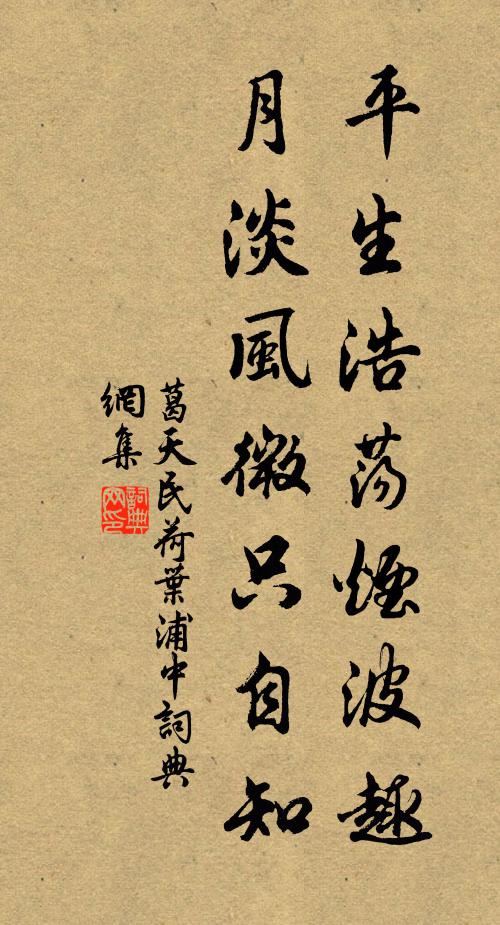 平生浩荡煙波趣
月淡風微只自知
葛天民荷葉浦中詞典
網集
詞典网印